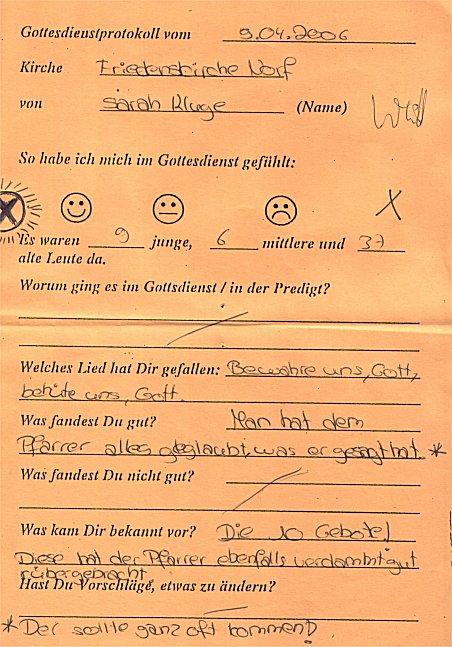 Gottesdienstprotokoll vom 9.04.2006
Kirche Friedenskirche Norf
von Sarah Kluge (Name)
So habe ich mich im Gottesdienst gefühlt:
X
Es waren 9 junge, 6 mittlere und 37
alte Leute da.
Worum ging es im Gottsdienst / in der Predigt?
Welches Lied hat Dir gefallen: Bewahre uns, Gott,
behüte uns, Gott.
Was fandest Du gut? Man hat dem
Pfarrer alles geglaubt, was er gesagt hat. *
Was fandest Du nicht gut?
Was kam Dir bekannt vor? Die 10 Gebote!
Diese hat der Pfarrer ebenfalls verdammt gut
rübergebracht
Hast Du Vorschläge, etwas zu ändern?
* Der sollte ganz oft kommen!